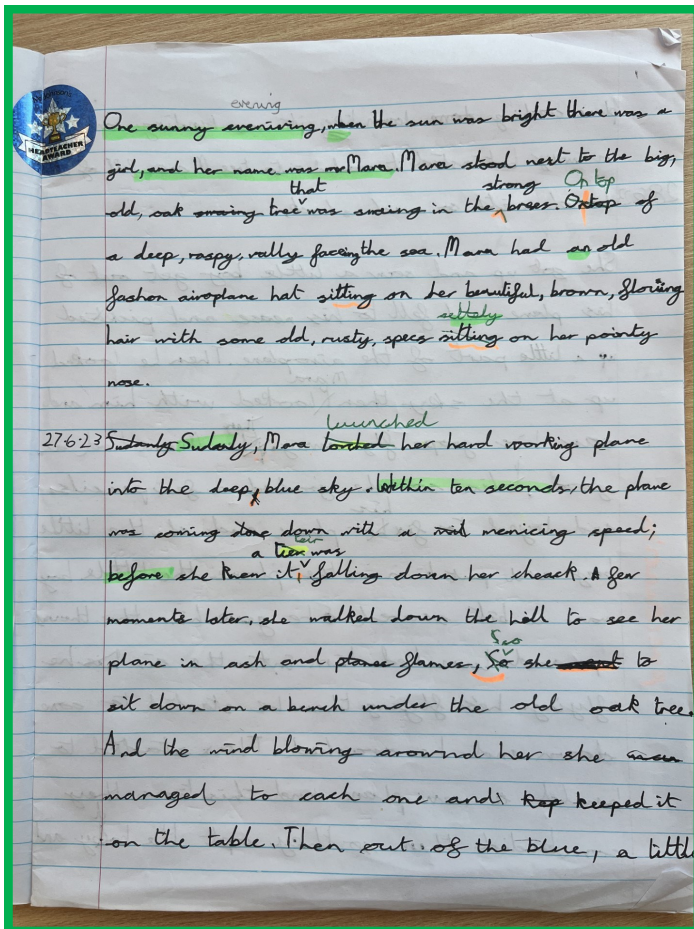 HEADTEACHER
AWARD
evening
One sunny eveniving, when the sun was bright there was a
girl, and her name was Mara. Mara stood next to the big,
that strong On top
old, oak tree was in the brees. Ontop of
a deep, raspy, vally faceing the sea. Mara had an old
fashon airoplane hat sitting on her beautiful, brown, flowing
settely
hair with some old, rusty, specs sitting on her pointy
nose.
launched
27.6.23 Sudanly Sudanly, Mara torched her hard woorking plane
into the deep, blue sky. Within ten seconds, the plane
was coming done down with a menicing speed;
teir
a tier was
before she knew it, falling down her cheack. A few
moments later, she walked down the hill to see her
Soo
plane in ash and planes flames, So she to
sit down on a bench under the old oak tree.
And the wind blowing arownd her she
managed to cach one and kep keeped it
on the table. Then out of the blue, a little